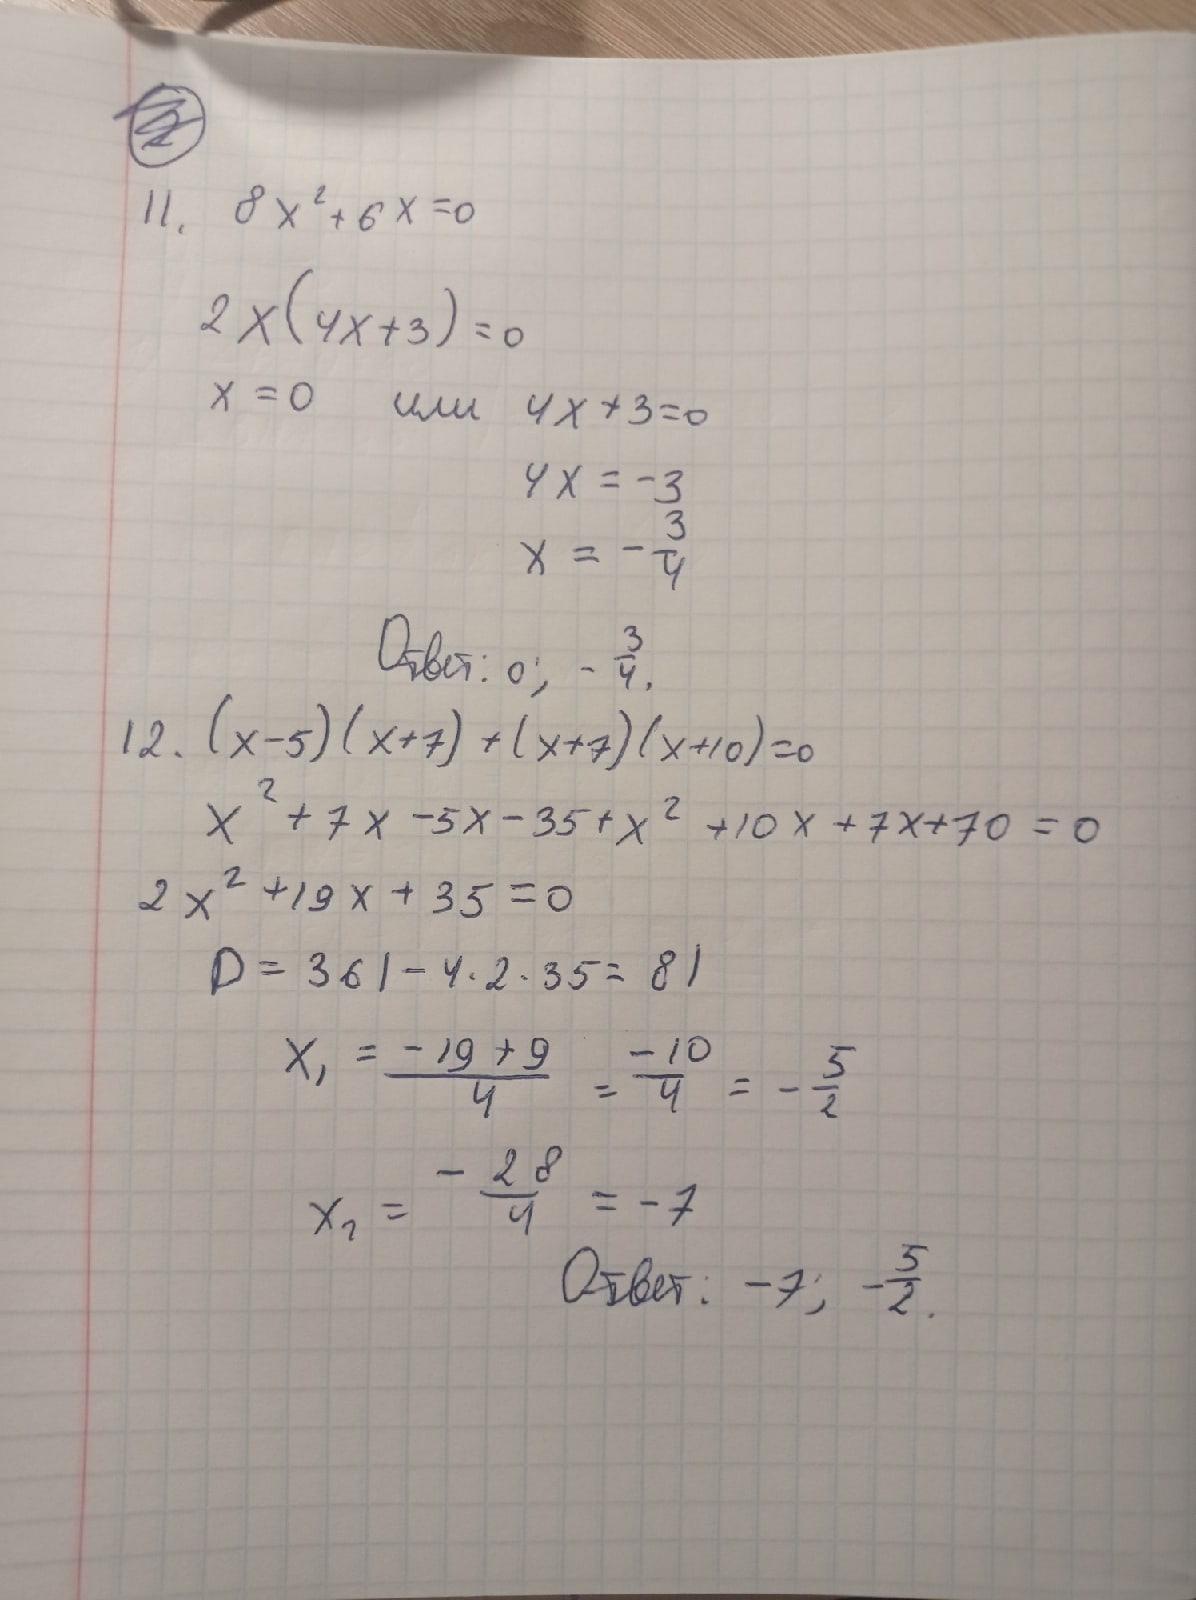 11. 8x²+6x=0
2x(4x+3)=0
x=0 или 4x+3=0
4x=-3
x=-3/4
Ответ: 0; -3/4.
12. (x-5)(x+7)+(x+7)(x+10)=0
x²+7x-5x-35+x²+10x+7x+70=0
2x²+19x+35=0
D=361-4·2·35=81
x₁=(-19+9)/4=-10/4=-5/2
x₂=-28/4=-7
Ответ: -7; -5/2.